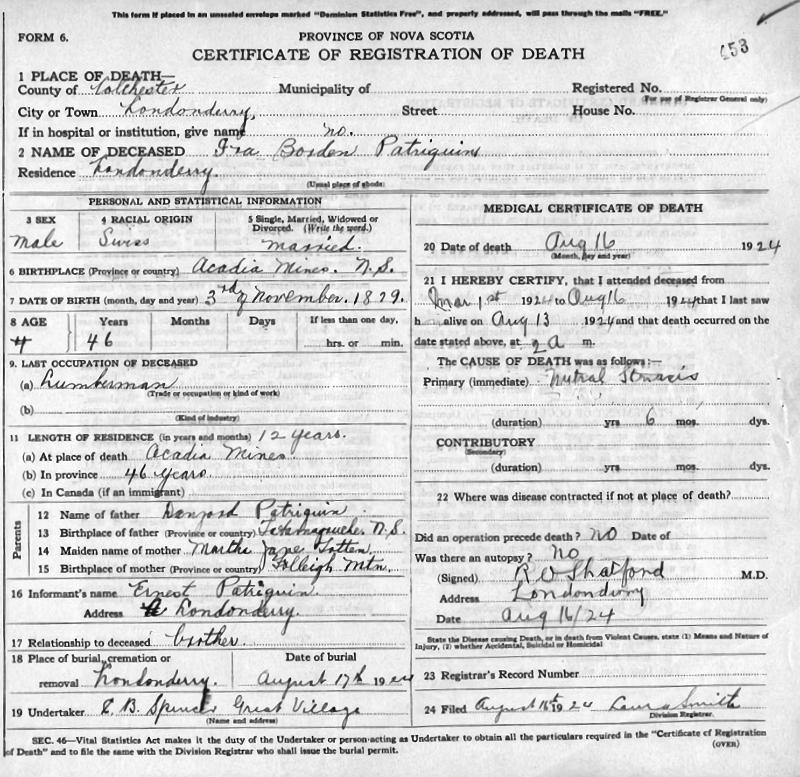 This form if placed in an unsealed envelope marked "Dominion Statistics Free", and properly addressed, will pass through the mails "FREE."
FORM 6.
PROVINCE OF NOVA SCOTIA
CERTIFICATE OF REGISTRATION OF DEATH
453
1 PLACE OF DEATH—
County of Colchester Municipality of Registered No.
(For use of Registrar General only)
City or Town Londonderry, Street House No.
If in hospital or institution, give name no.
2 NAME OF DECEASED Ira Borden Patriquin
Residence Londonderry.
(Usual place of abode)
PERSONAL AND STATISTICAL INFORMATION
3 SEX 4 RACIAL ORIGIN 5 Single, Married, Widowed or Divorced. (Write the word.)
Male Swiss married.
6 BIRTHPLACE (Province or country) Acadia Mines. N.S.
7 DATE OF BIRTH (month, day and year) 3rd of November. 1879.
8 AGE Years Months Days If less than one day,
46 hrs. or min.
9. LAST OCCUPATION OF DECEASED
(a) Lumberman
(Trade or occupation or kind of work)
(b)
(Kind of industry)
11 LENGTH OF RESIDENCE (in years and months) 12 years.
(a) At place of death Acadia Mines
(b) In province 46 years
(c) In Canada (if an immigrant)
Parents
12 Name of father Danford Patriquin
13 Birthplace of father (Province or country) Tatamagouche. N.S.
14 Maiden name of mother Martha Jane Totten
15 Birthplace of mother (Province or country) Folleigh Mtn.
16 Informant's name Ernest Patriquin.
Address Londonderry.
17 Relationship to deceased brother.
18 Place of burial, cremation or removal Londonderry. Date of burial August 17th 1924
19 Undertaker E. B. Spencer Great Village
(Name and address)
MEDICAL CERTIFICATE OF DEATH
20 Date of death Aug 16 1924
(Month, day and year)
21 I HEREBY CERTIFY, that I attended deceased from
Mar 1st 1924 to Aug 16 1924 that I last saw
h alive on Aug 13 1924 and that death occurred on the
date stated above, at 2 A m.
The CAUSE OF DEATH was as follows:—
Primary (immediate) Mitral Stenosis
(duration) yrs 6 mos. dys.
CONTRIBUTORY
(Secondary)
(duration) yrs. mos. dys.
22 Where was disease contracted if not at place of death?
Did an operation precede death? NO Date of
Was there an autopsy? NO
(Signed) R O Shatford M.D.
Address Londonderry
Date Aug 16/24
State the Disease causing Death, or in death from Violent Causes, state (1) Means and Nature of
Injury, (2) whether Accidental, Suicidal or Homicidal
23 Registrar's Record Number
24 Filed August 16th 1924 Laura Smith
Division Registrar.
SEC. 46—Vital Statistics Act makes it the duty of the Undertaker or person acting as Undertaker to obtain all the particulars required in the "Certificate of Registration
of Death" and to file the same with the Division Registrar who shall issue the burial permit.
(OVER)